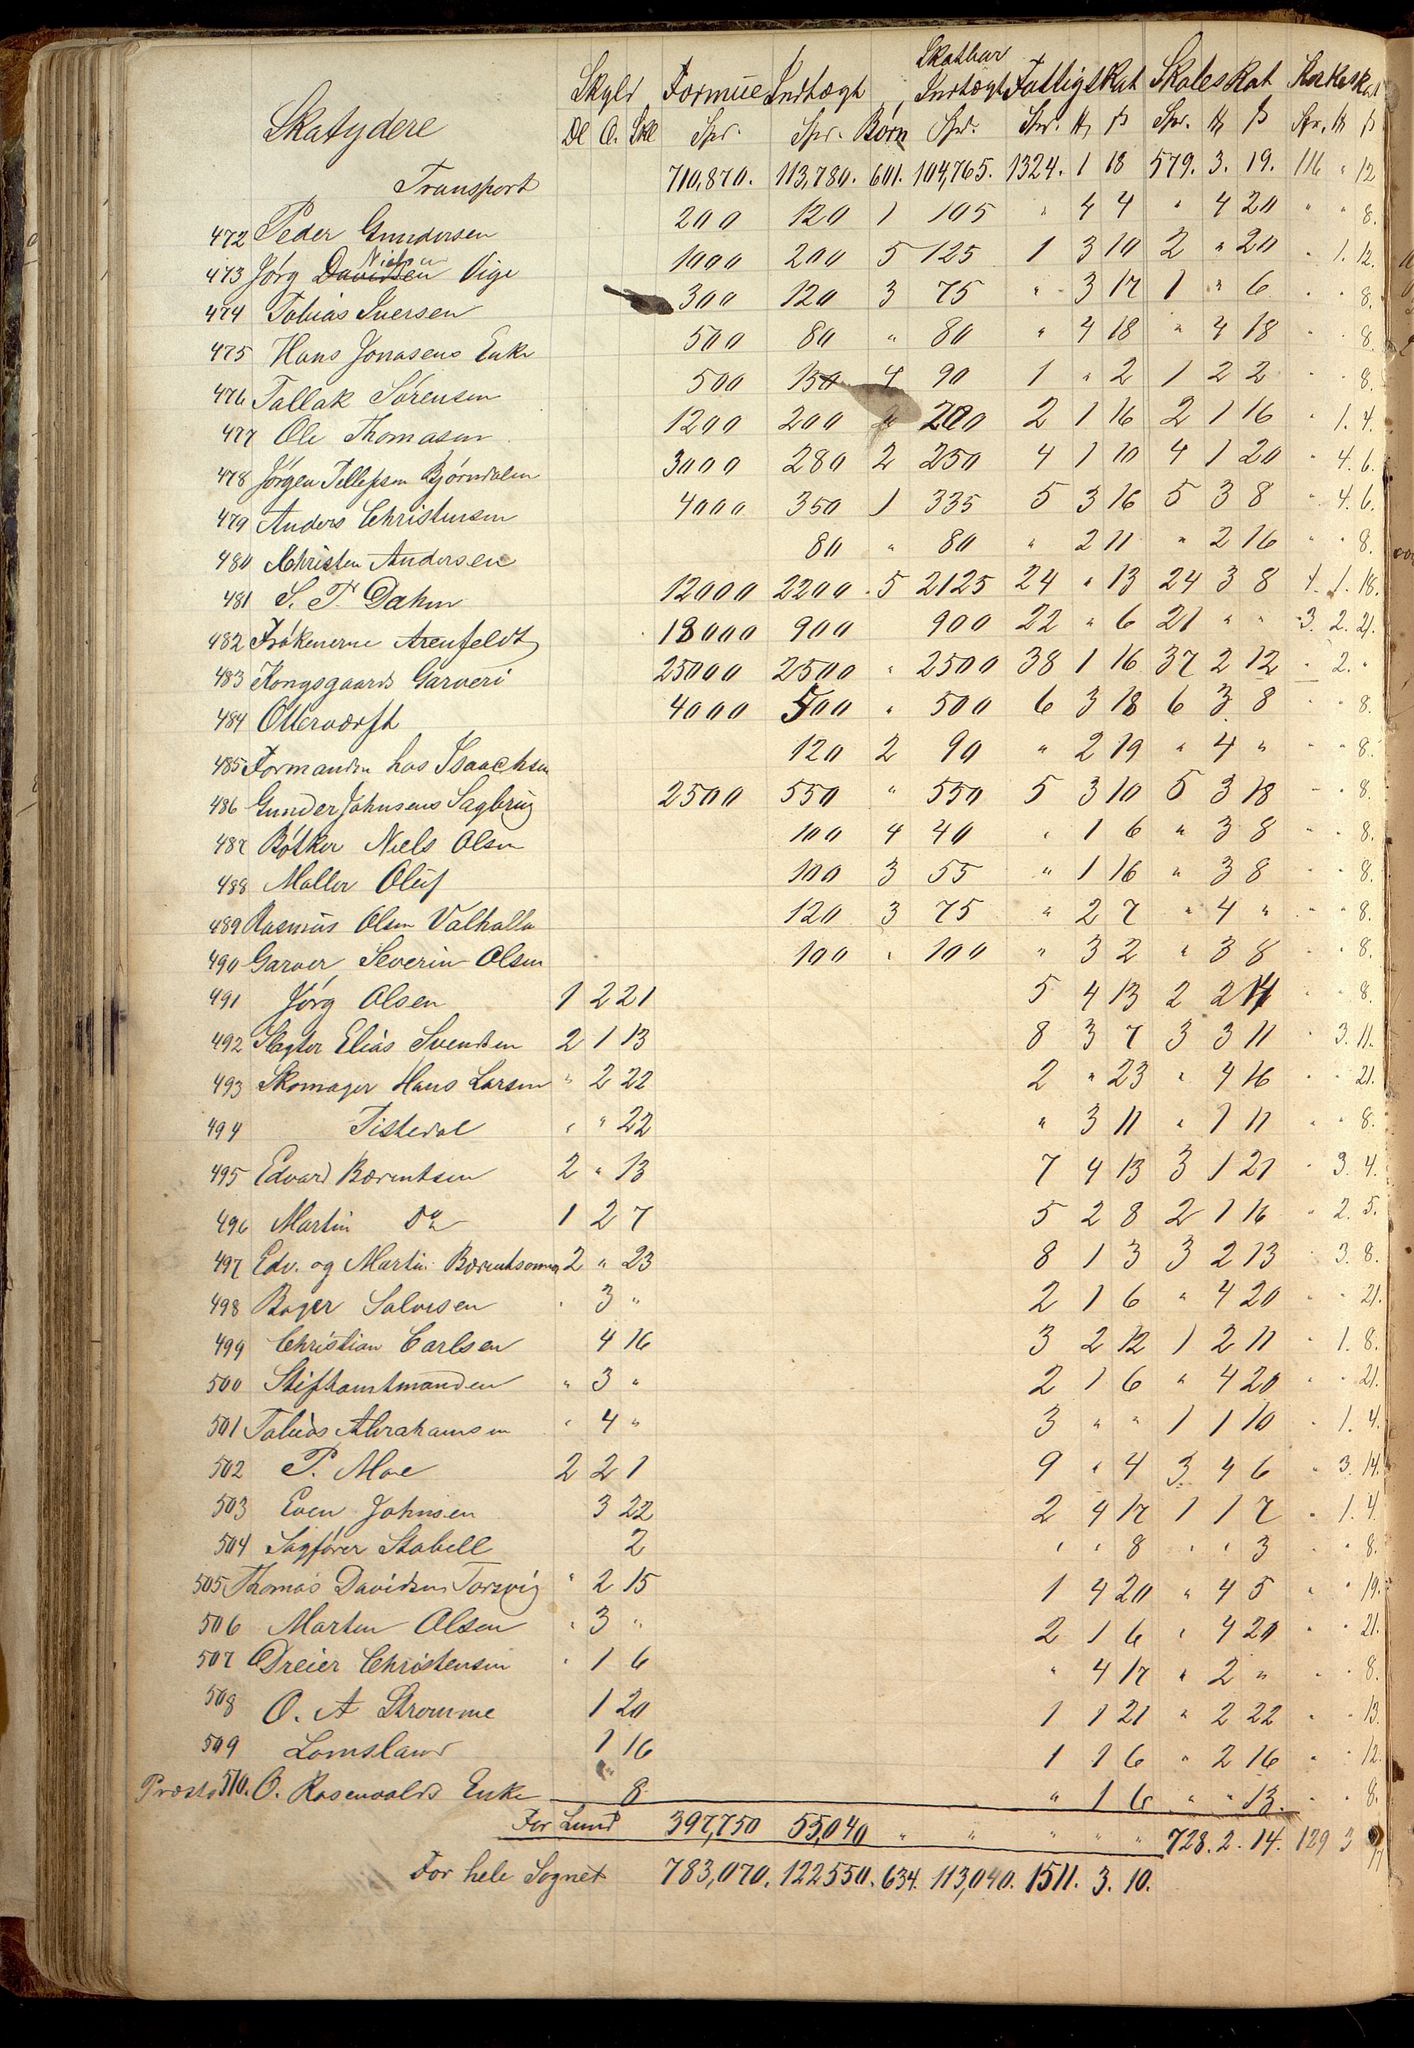 Skatydere Skyld Formue Indtægt Skatbar Indtægt Fattigskat Skoleskat
Dl O. Skl Spr. Spr. Børn Spd. Spr. # ß Spr. # ß Spr. # ß
Transport 710,870. 113,780. 601. 104,765. 1324. 1 18 579. 3. 19. 116 " 12
472 Peder Gundersen 200 120 1 105 " 4 4 " 4 20 " " 8.
473 Jørg Davidsen Vige 1000 200 5 125 1 3 10 2 " 20 " 1. 12.
474 Tobias Iversen 300 120 3 75 " 3 17 1 " 6 " " 8.
475 Hans Jonasens Enke 500 80 " 80 " 4 18 " 4 18 " " 8.
476 Tallak Sørensen 500 150 4 90 1 " 2 1 2 2 " " 8.
477 Ole Thomasen 1200 200 " 200 2 1 16 2 1 16 " 1. 4.
478 Jørgen Tellefsen Bjørndalen 3000 280 2 250 4 1 10 4 1 20 " 4. 6.
479 Anders Christensen 4000 350 1 335 5 3 16 5 3 8 " 4. 6.
480 Christen Andersen 80 " 80 " 2 11 " 2 16 " " 8.
481 S. T. Dahm 12000 2200 5 2125 24 " 13 24 3 8 4. 1. 18.
482 Frøkenerne Arenfeldt 18000 900 900 22 " 6 21 " " 3. 2. 21.
483 Kongsgaards Garveri 25000 2500 " 2500 38 1 16 37 2 12 " 2. "
484 Ottersværft 4000 500 " 500 6 3 18 6 3 8 " " 8.
485 Formanden hos Isaachsen 120 2 90 " 2 19 " 4 " " " 8.
486 Gunder Johnsens Sagbrug 2500 550 " 550 5 3 10 5 3 18 " " 8.
487 Bøtker Niels Olsen 100 4 40 " 1 6 " 3 8 " " 8.
488 Møller Oluf 100 3 55 " 1 16 " 3 8 " " 8.
489 Rasmus Olsen Valhalla 120 3 75 " 2 7 " 4 " " " 8.
490 Garver Severin Olsen 100 " 100 " 3 2 " 3 8 " " 8.
491 Jørg Olsen 1 2 21 5 4 13 2 2 14 " " 8.
492 Slagter Elias Svendsen 2 1 13 8 3 7 3 3 11 " 3. 11.
493 Skomager Hans Larsen " 2 22 2 " 23 " 4 16 " " 21.
494 Tistedal " " 22 " 3 11 " 1 11 " " 8.
495 Edvard Bærentsen 2 " 13 7 4 13 3 1 21 " 3. 4.
496 Martin Do 1 2 7 5 2 8 2 1 16 " 2. 5.
497 Edv. og Martin Bærentsen 2 " 23 8 1 3 3 2 13 " 3. 8.
498 Bager Salvesen " 3 " 2 1 6 " 4 20 " " 21.
499 Christian Carlsen 4 16 3 2 12 1 2 11 " 1. 8.
500 Stiftamtmanden " 3 " 2 1 6 " 4 20 " " 21.
501 Tobias Abrahamsen " 4 " 3 " " 1 1 10 " 1. 4.
502 P. Moe 2 2 1 9 " 4 3 4 6 " 3. 14.
503 Even Johnsen 3 22 2 4 17 1 1 7 " 1. 4.
504 Sagfører Stabell 2 " " 8 " " 3 " " 8.
505 Thomas Davidsen Torsvig " 2 15 1 4 20 " 4 5 " " 19.
506 Morten Olsen " 3 " 2 1 6 " 4 20 " " 21.
507 Dreier Christensen " 1 6 " 4 17 " 2 " " " 8.
508 O. A Strømme 1 20 1 1 21 " 2 22 " " 13.
509 Lomsland 1 16 1 1 6 " 2 16 " " 12.
510. O. Rosenvolds Enke 8 " 1 6 " " 13. " " 8.
For Lund 397,750 55,040 " " " " " 728. 2. 14. 129 3
For hele Sognet 783,070. 122550. 634. 113,040. 1511. 3. 10.